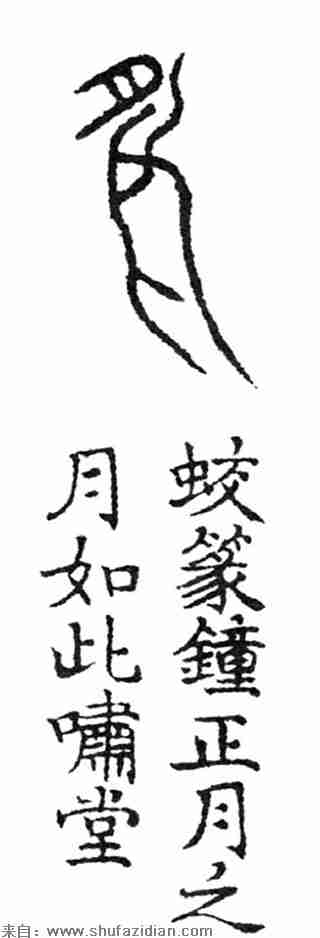 蛟篆鐘正月之
月如此嘯堂
来自：www.shufazidian.com